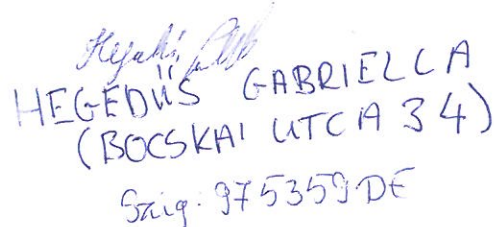 HEGEDŰS GABRIELLA
(BOCSKAI UTCA 34)
Szig: 975359DE